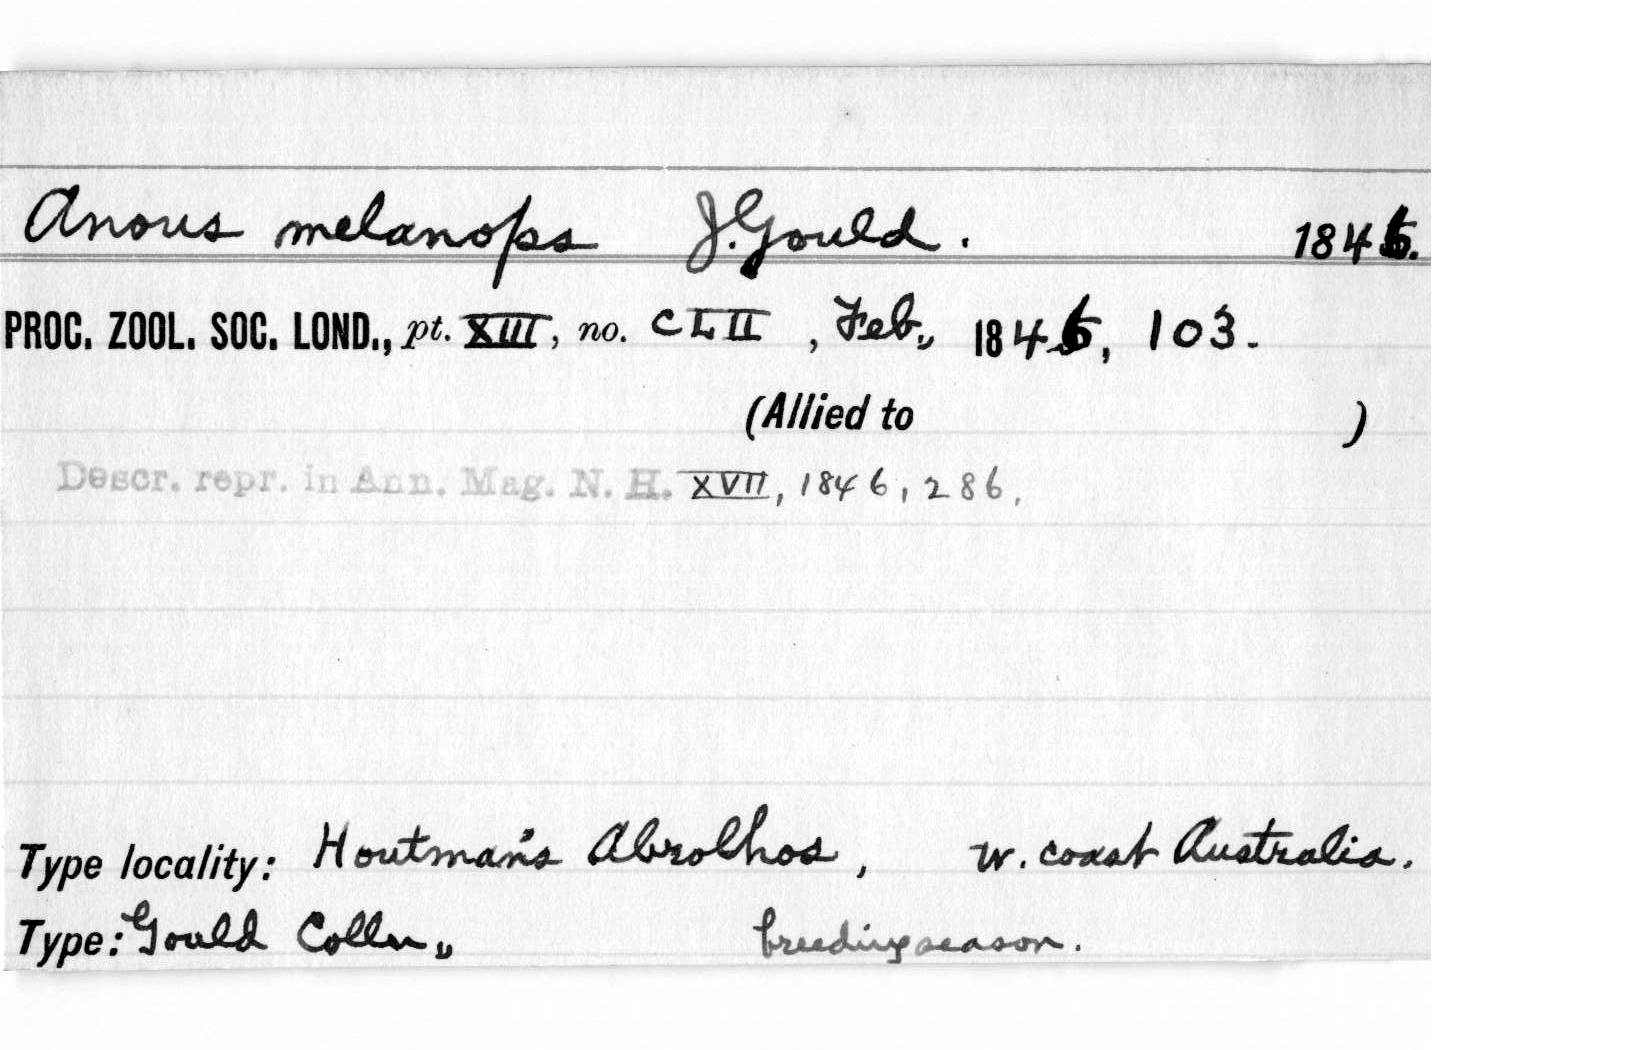 Anous melanops J. Gould. 1846.
PROC. ZOOL. SOC. LOND., pt. XIII, no. CLII, Feb., 1846, 103.
(Allied to )
Descr. repr. in Ann. Mag. N. H. XVII, 1846, 286.
Type locality: Houtman's Abrolhos, w. coast Australia.
Type: Gould Colln., breeding season.